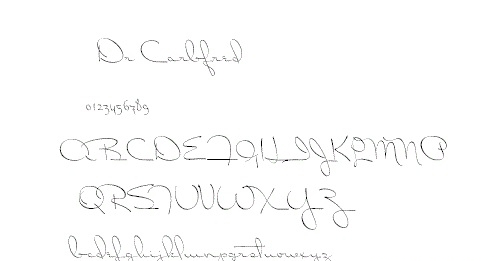 Dr Carbfred
0123456789
ABCDEFGHIJKLMNOP
QRSTUVWXYZ
bcdefghijklmnopqrstuvwxyz